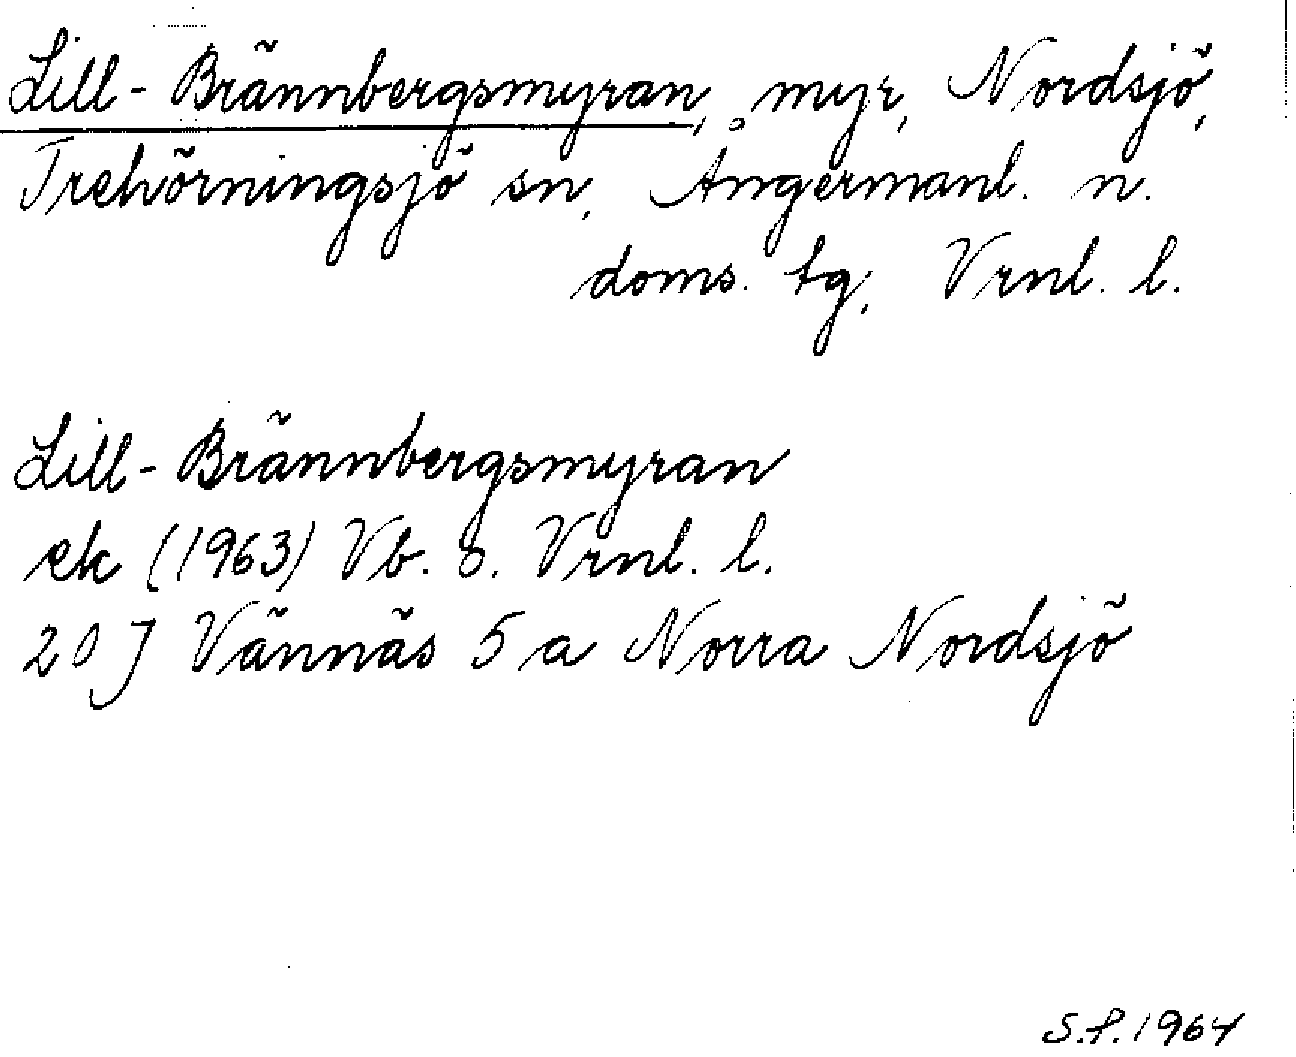 Lill-Brännbergsmyran, myr, Nordsjö,
Trehörningsjö sn, Ångermanl. n.
doms. tg, Vrnl. l.
Lill-Brännbergsmyran
ek (1963) Vb. o. Vrnl. l.
20 J Vännäs 5 a Norra Nordsjö
S.P. 1964